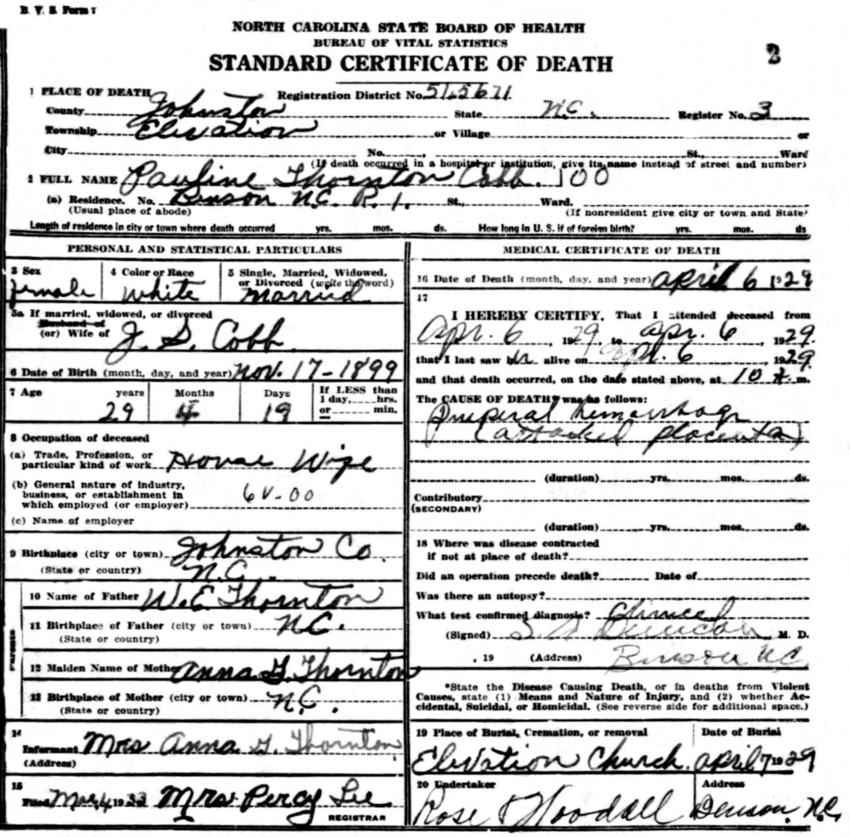 B. V. S. Form 7
NORTH CAROLINA STATE BOARD OF HEALTH
BUREAU OF VITAL STATISTICS
STANDARD CERTIFICATE OF DEATH
1 PLACE OF DEATH
Registration District No. 51.5671
County Johnston State N.C. Register No. 3
Township Elevation or Village or
City No. St., Ward
(If death occurred in a hospital or institution, give its name instead of street and number)
2 FULL NAME Pauline Thornton Cobb. 100
(a) Residence. No. Benson N.C. R. 1. St., Ward.
(Usual place of abode) (If nonresident give city or town and State)
Length of residence in city or town where death occurred yrs. mos. ds. How long in U. S. if of foreign birth? yrs. mos. ds
PERSONAL AND STATISTICAL PARTICULARS
3 Sex 4 Color or Race 5 Single, Married, Widowed,
or Divorced (write the word)
female white Married
5a If married, widowed, or divorced
Husband of
(or) Wife of J. S. Cobb
6 Date of Birth (month, day, and year) Nov. 17-1899
7 Age years Months Days If LESS than
1 day, hrs.
or min.
29 4 19
8 Occupation of deceased
(a) Trade, Profession, or
particular kind of work House Wife
(b) General nature of industry,
business, or establishment in
which employed (or employer) 6V-00
(c) Name of employer
9 Birthplace (city or town) Johnston Co.
(State or country) N.C.
10 Name of Father W. E. Thornton
11 Birthplace of Father (city or town) N.C.
(State or country)
12 Maiden Name of Mother Anna G. Thornton
13 Birthplace of Mother (city or town)
(State or country) N.C.
14
Informant Mrs Anna G. Thornton
(Address)
15
Filed 1933 Mrs. Percy Lee
REGISTRAR
MEDICAL CERTIFICATE OF DEATH
16 Date of Death (month, day, and year) April 6 1929
17
I HEREBY CERTIFY, That I attended deceased from
Apr. 6, 1929 to Apr. 6, 1929.
that I last saw alive on Apr. 6 1929.
and that death occurred, on the date stated above, at 10 m.
The CAUSE OF DEATH was as follows:
Puerperal hemorrhage
(attached placenta)
(duration) yrs. mos. ds.
Contributory
(SECONDARY)
(duration) yrs. mos. ds.
18 Where was disease contracted
if not at place of death?
Did an operation precede death? Date of
Was there an autopsy?
What test confirmed diagnosis? Clinical
(Signed) M. D.
, 19 (Address) Benson N.C.
*State the Disease Causing Death, or in deaths from Violent
Causes, state (1) Means and Nature of Injury, and (2) whether Ac-
cidental, Suicidal, or Homicidal. (See reverse side for additional space.)
19 Place of Burial, Cremation, or removal Date of Burial
Elevation Church. April 7 1929
20 Undertaker Address
Rose & Woodall Benson, N.C.